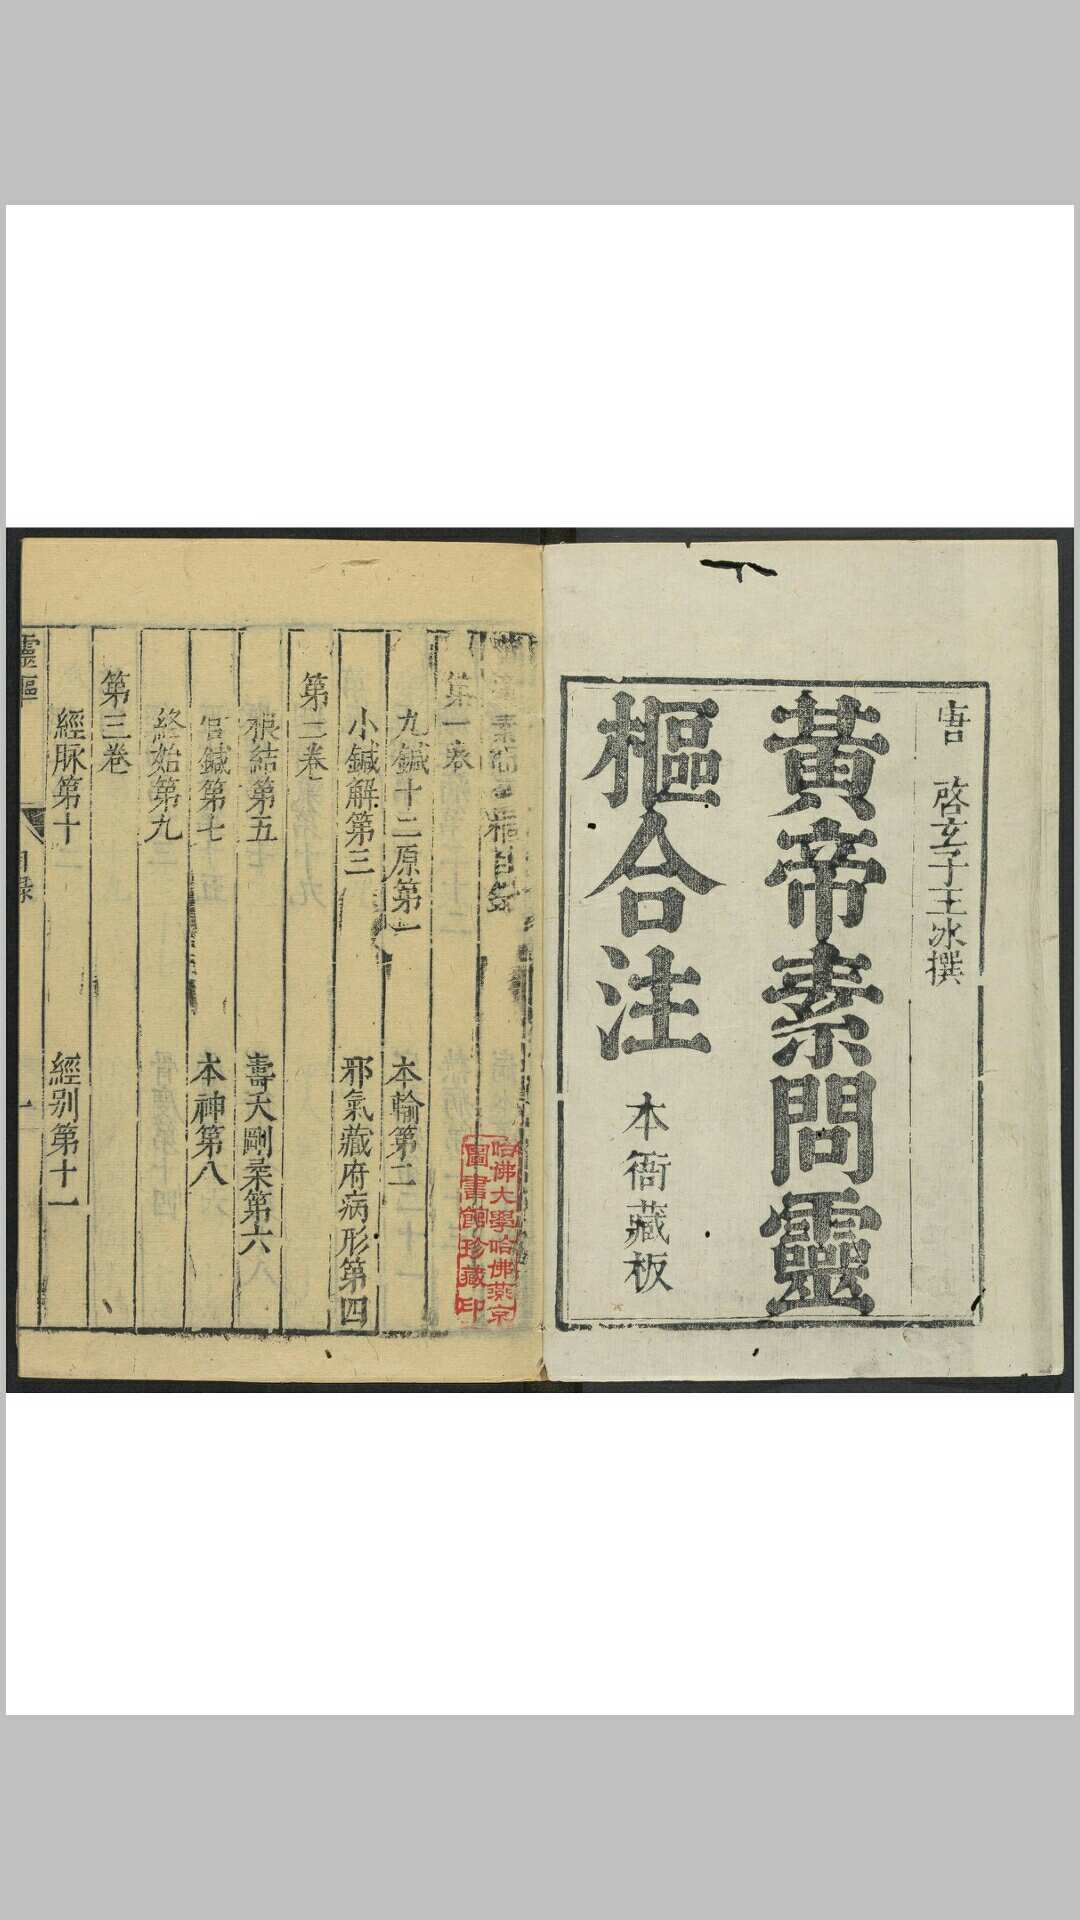 唐 啓玄子王冰撰
黃帝素問靈
樞合注
本衙藏板
第一卷
九鍼十二原第一 本輸第二
小鍼解第三 邪氣藏府病形第四
第二卷
根結第五 壽夭剛柔第六
官鍼第七 本神第八
終始第九
第三卷
經脉第十 經别第十一
靈樞
目錄
一
哈佛大學哈佛燕京
圖書館珍藏印